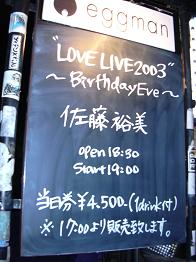 eggman
"LOVE LIVE2003"
～BirthdayEve～
佐藤裕美
open 18:30
Start 19:00
当日券¥4.500-(1drink付)
※17:00より販売致します。